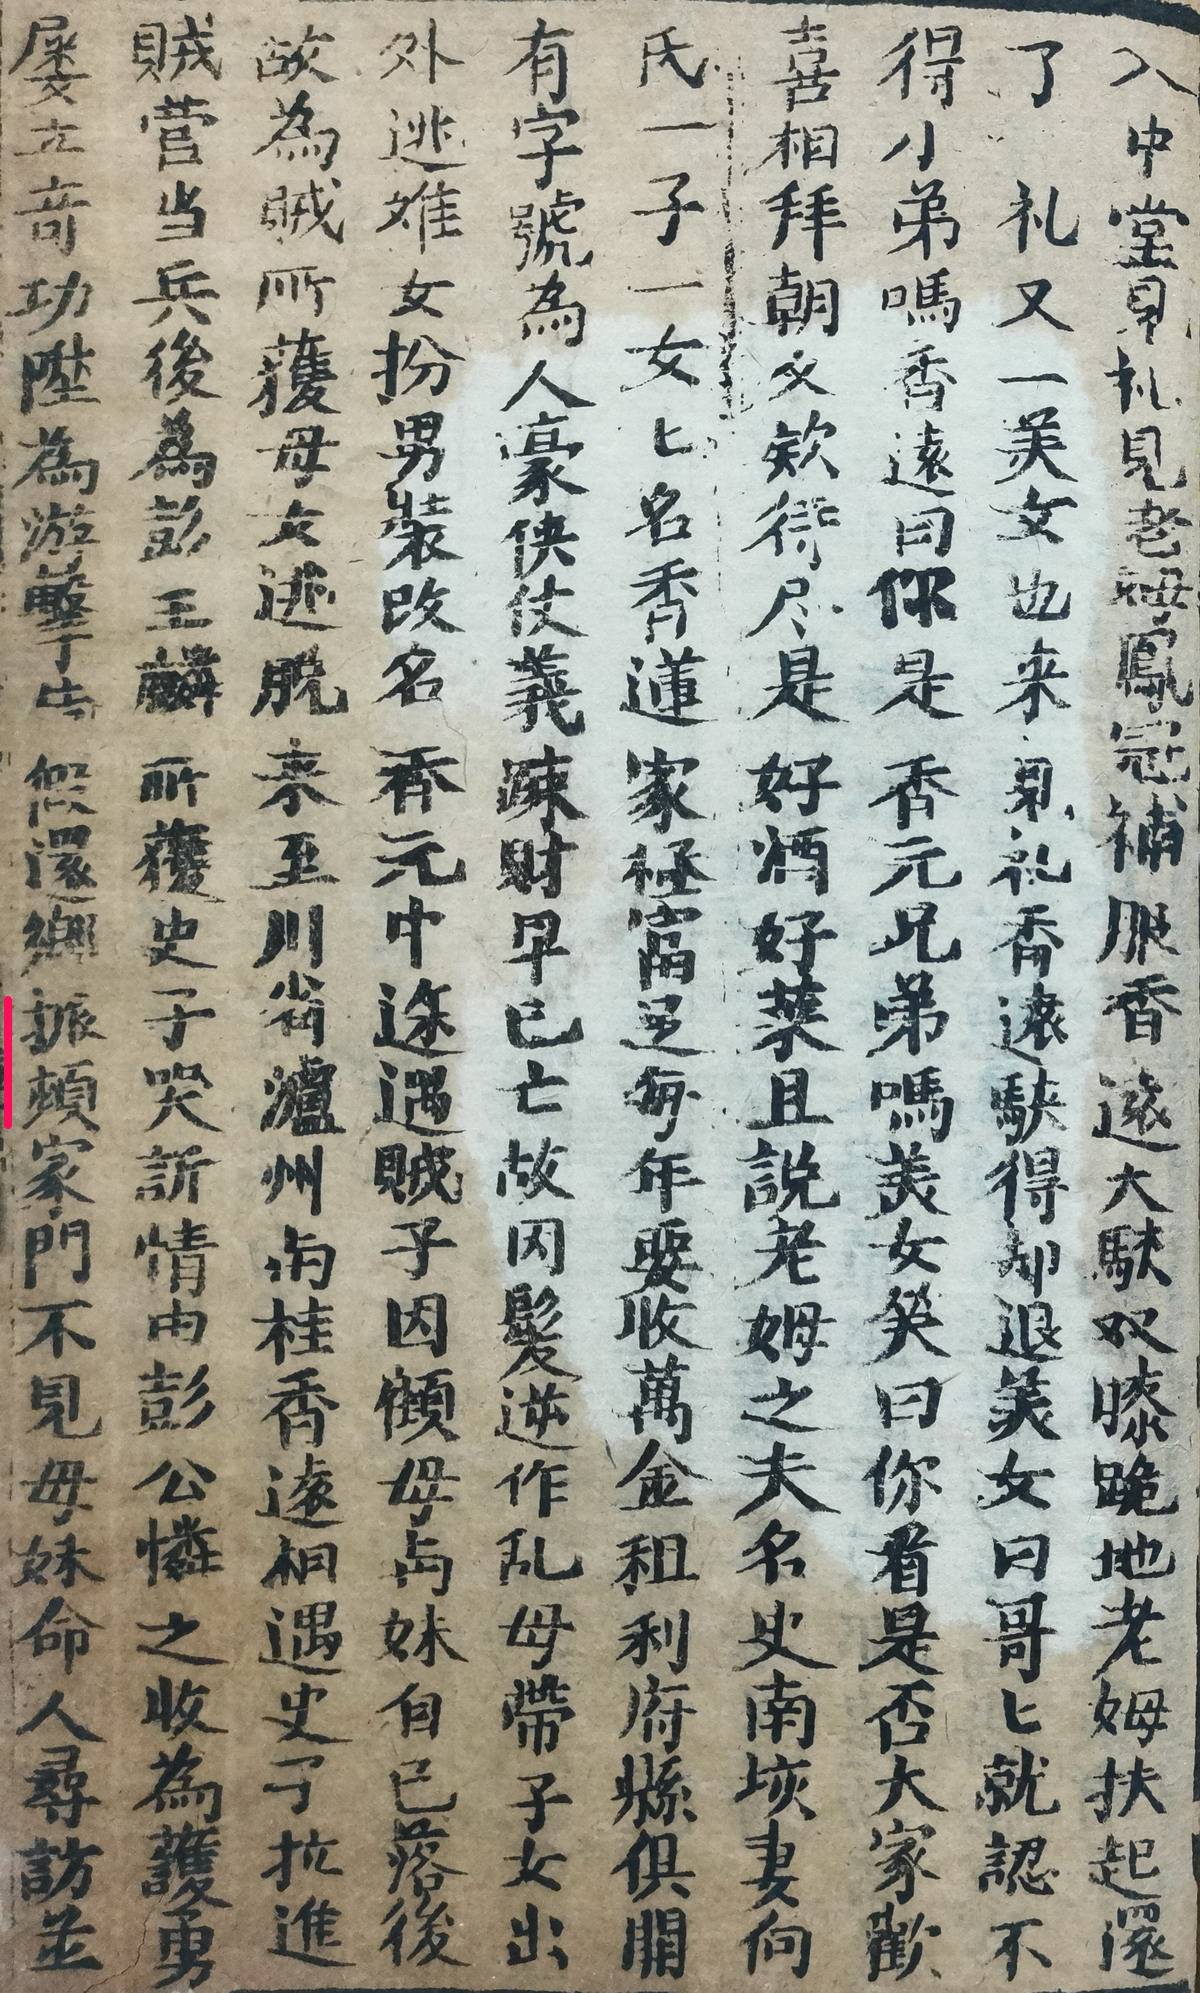 入中堂見礼見老姆鳳冠補服香遠大駭双膝跪地老姆扶起還
了礼又一美女也来見礼香遠駭得却退美女曰哥匕就認不
得小弟嗎香遠曰你是香元兄弟嗎美女癸曰你看是否大家歡
喜相拜朝文欵待尽是好酒好菜且説老姆之夫名史南垓妻向
氏一子一女匕名香蓮家極富足每年要收萬金租利府縣俱開
有字號為人豪俠仗義踈財早已亡故因髮逆作乱母帶子女出
外逃难女扮男裝改名香元中途遇賊子因顧母与妹自己落後
故為賊所獲母女逃脱来至川省瀘州与桂香遠相遇史子拉進
賊营当兵後為彭玉麟所獲史子哭訴情由彭公憐之收為護勇
屡立竒功陞為游擊告假還鄉振頓家門不見母妹命人尋訪並